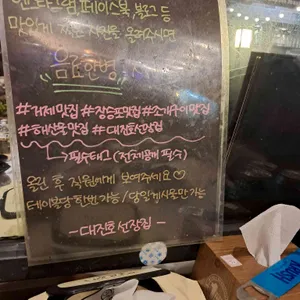 인스타그램, 페이스북, 블로그 등
맛있게 찍은 사진을 올려주시면
음료한병
#거제맛집 #장승포맛집 #조개구이맛집
#해산물맛집 #대진호선장집
필수태그 (전체공개 필수)
올린 후 직원에게 보여주세요♡
테이블당 한번 가능 / 당일게시물만 가능
- 대진호선장집 -